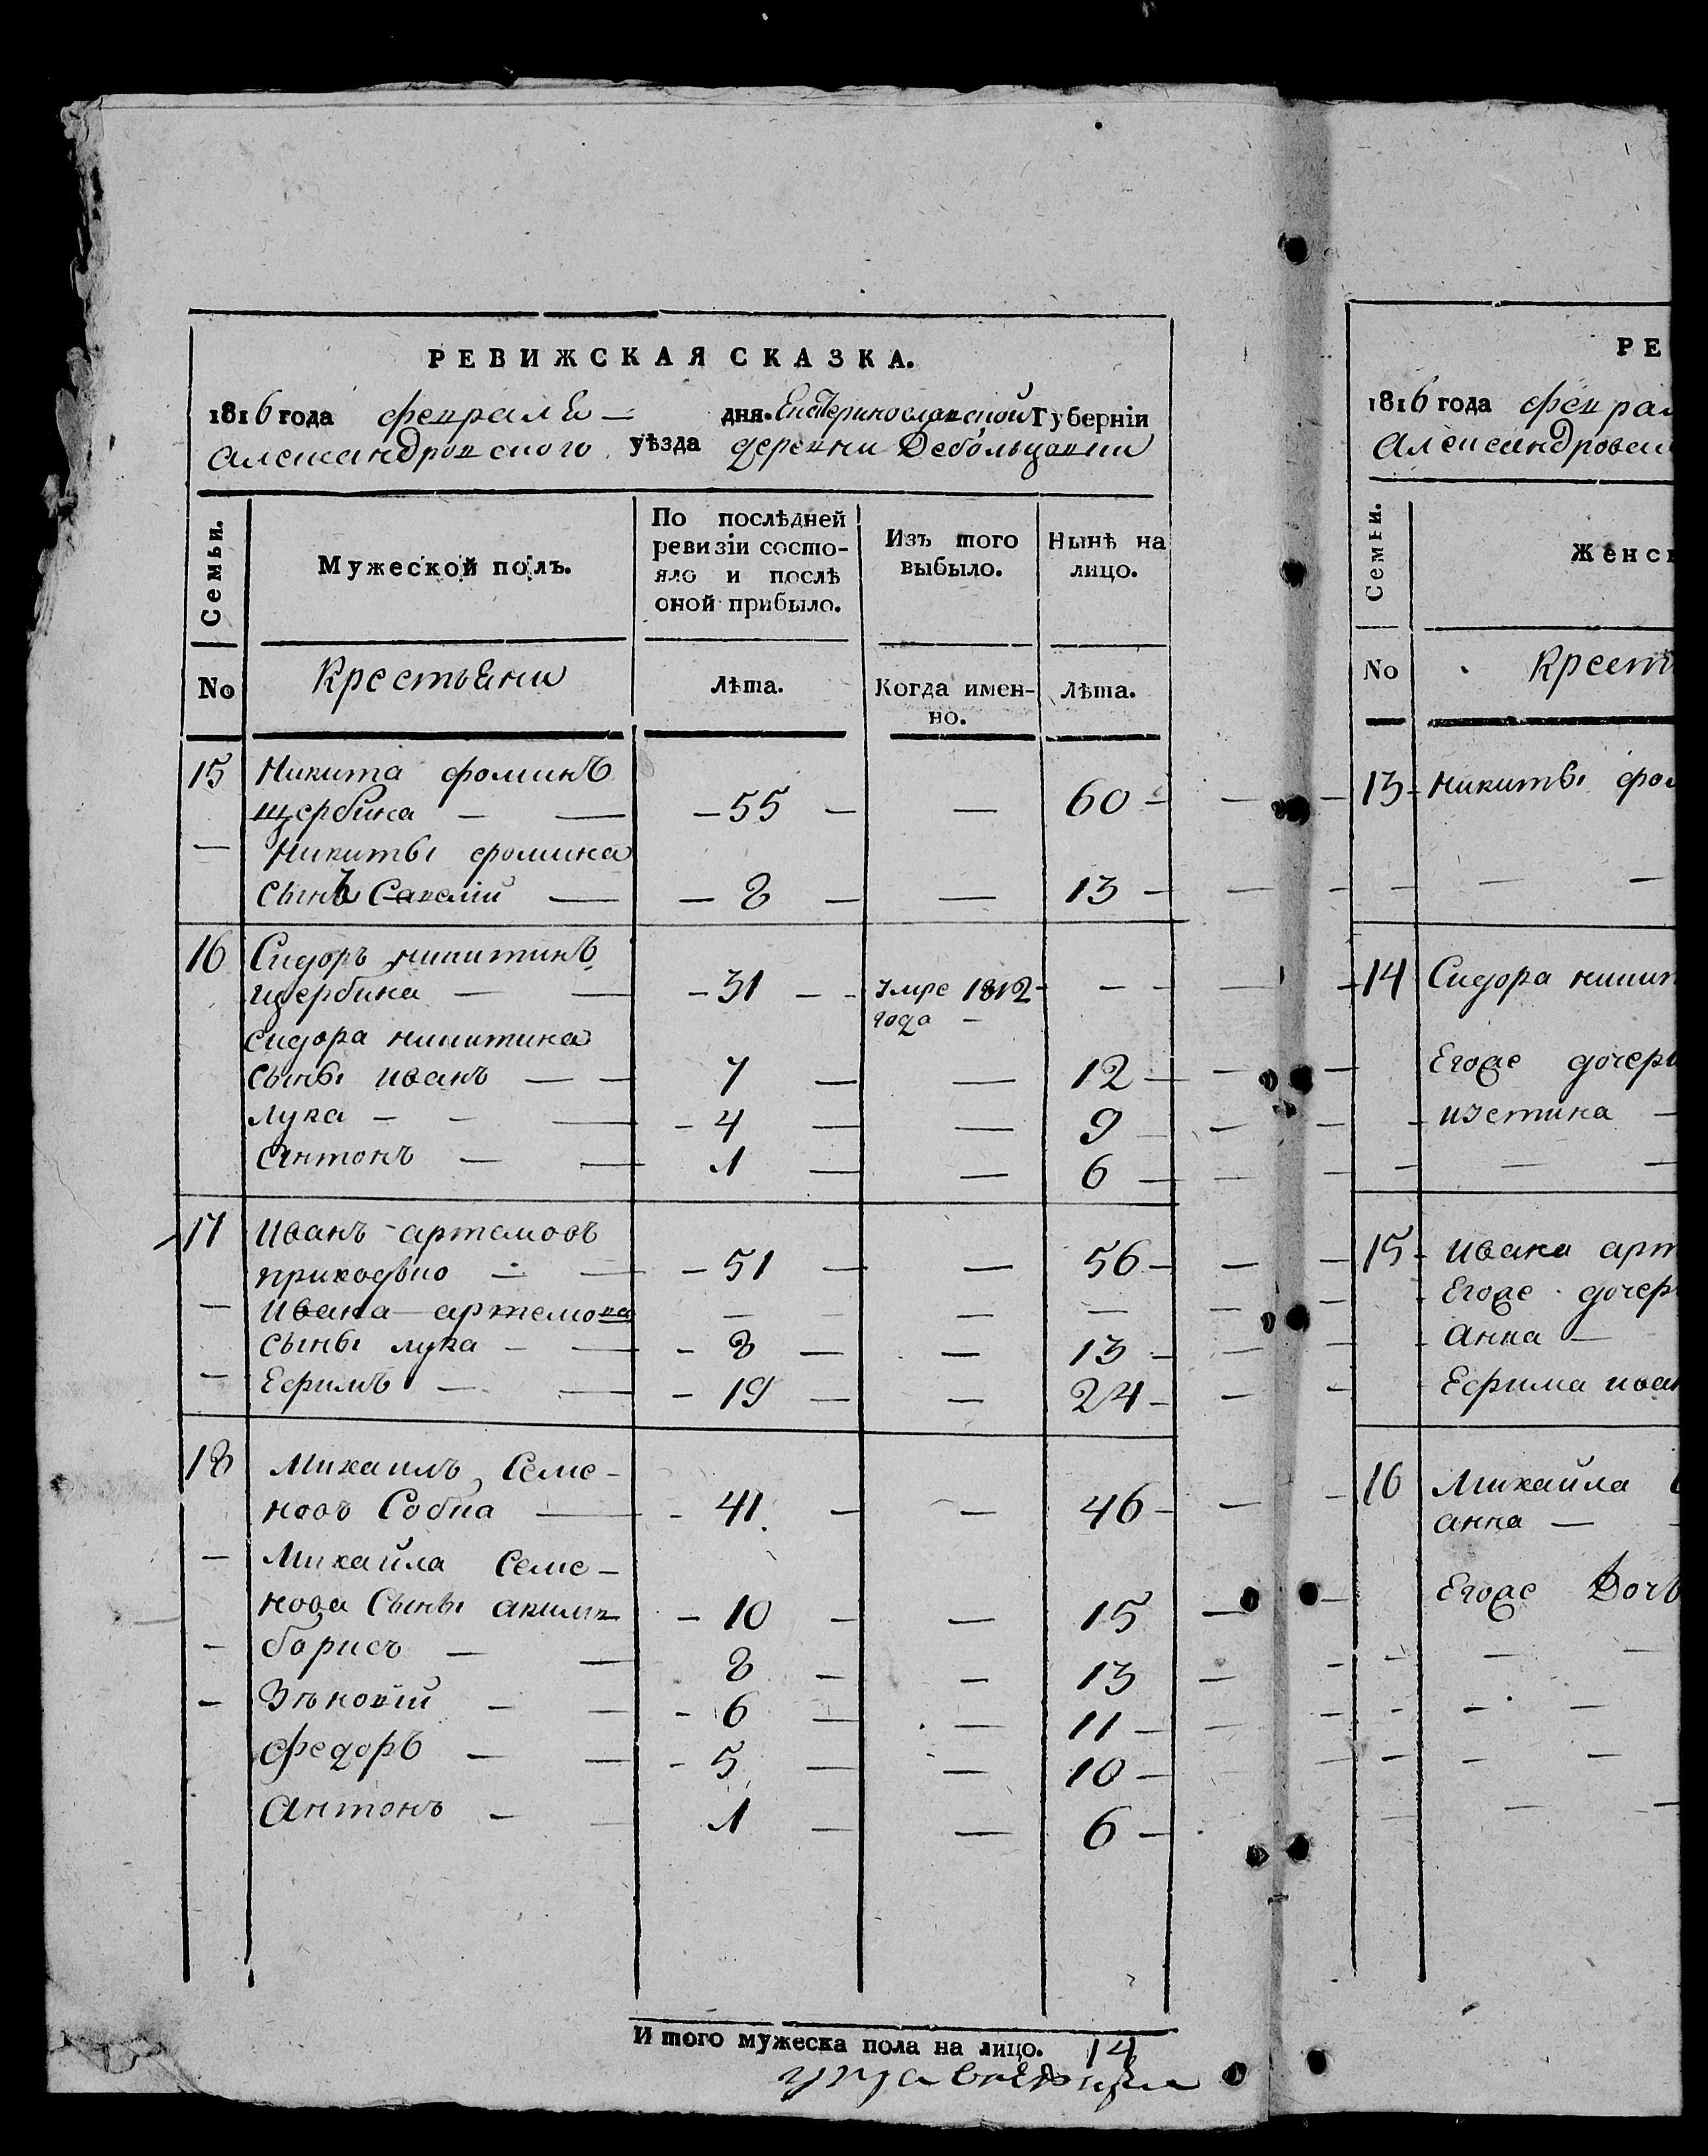 РЕВИЖСКАЯ СКАЗКА.
1816 года февраля — дня. Екатеринославской Губерніи
Александровского уѣзда деревни Дебольцовки
Семьи.
Мужеской полъ.
По послѣдней ревизіи состояло и послѣ оной прибыло.
Изъ того выбыло.
Нынѣ на лицо.
No
Крестьяни
лѣта.
Когда имен-
но.
лѣта.
15 Никита фоминъ
щербина — — — 55 — — 60 —
— Никиты фомина
сынъ Савелій — — 8 — — 13 —
16 Сидоръ никитинъ
щербина — — — 31 — — умре 1812 — —
года —
сидора никитина
сыны иванъ — — 7 — — 12 —
лука — — — 4 — — 9 —
антонъ — — 1 — — 6 —
17 Иванъ артемовъ
приходько — — — 51 — — 56 —
— Ивана артемова — — —
сыны лука — — — 8 — — 13 —
— Ефимъ — — — 19 — — 24 —
18 Михаилъ Семе-
новъ Собка — — 41. — — 46 —
— Михайла Семе-
нова Сыны акимъ — 10 — — 15
— борисъ — — 8 — — 13
— Зѣновій — — — 6 — — 11 —
федоръ — — — 5 — — 10 —
Антонъ — — 1 — — 6 —
И того мужеска пола на лицо. 14
РЕ
1816 года феврал
Александровск
Семьи.
Женск
No
Крест
13 никиты фом
14 Сидора никит
Егоже дочерь
устина —
15 ивана арт
Егоже дочер
анна —
Ефима иван
16 Михайла С
анна —
Егоже Дочь